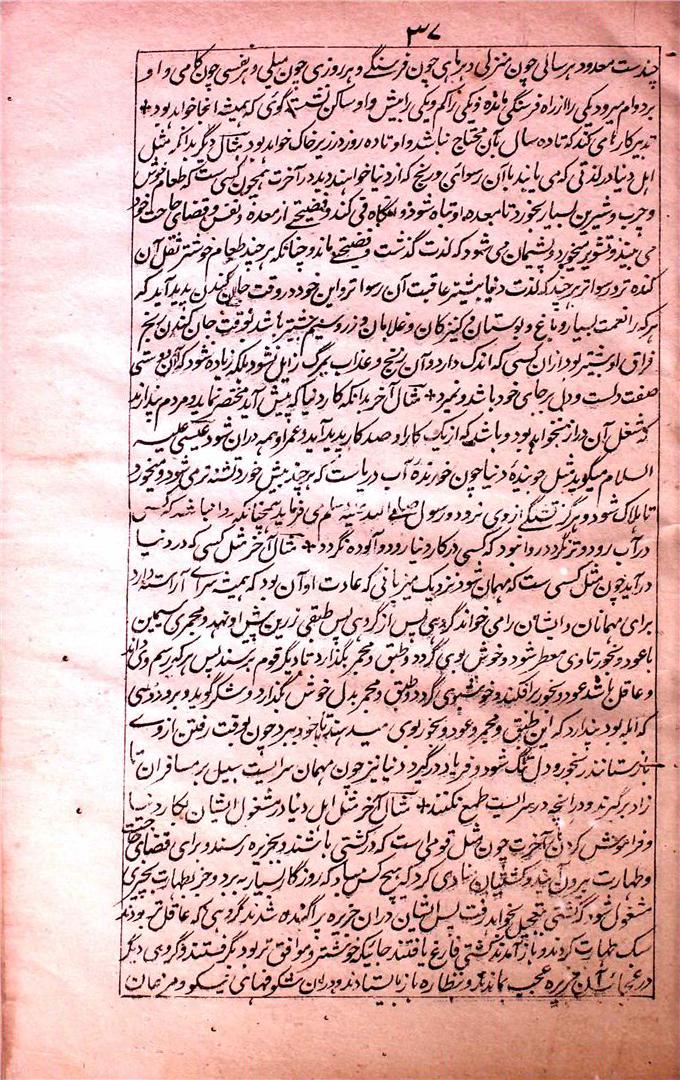 ۳۷
چندست معدود هر سالی چون منزلی و هر ماهی چون فرسنگے و هر روزی چون میلی و هر نفسی چون گامی و او
بر دوام میرود یکی را از راه فرسنگی مانده و یکی را کم و یکی را بیش و او ساکن نشسته گوئی که همیشه آنجا خواهد بود +
تدبیر کارهای کند که تا ده سال بآن محتاج نباشد و او تا ده روز در زیر خاک خواهد بود مثال دیگر بدانکه مثل
اهل دنیا در لذتی که می یابند با آن رسوائی و رنج که از دنیا خواهند دید در آخرت همچون کسی ست که طعام خوش
و چرب و شیرین بسیار بخورد تا معده او تباه شود و آنگاه قی کند و فضیحتے از معده و نفس و قضای حاجت خود
می بیند و تشویر میخورد و پشیمان می شود که لذت گذشت و فضیحت ماند و چنانکه هر چند طعام خوشتر ثقل آن
گنده تر و رسواتر هر چند که لذت دنیا بیشتر عاقبت آن رسواتر و این خود در وقت جان کندن پدید آید که
هر که را نعمت بسیار و باغ و بوستان و کنیزکان و غلامان و زر و سیم بیشتر باشد بوقت جان کندن رنج
فراق او بیشتر بود از ان کسی که اندک دارد و آن رنج و عذاب بمرگ زایل نشود بلکه زیاده شود که آن دوستی
صفت دلست و دل بر جای خود باشد و نمیرد + مثال آخر بدانکه کار دنیا که پیش آید مختصر نماید و مردم پندارند
که شغل آن دراز نخواهد بود و باشد که از یک کار او صد کار پدید آید و عمر او همه در ان شود عیسی علیه
السلام میگوید مثل جوینده دنیا چون خورنده آب دریاست که هر چند بیش خورد تشنه تر می شود و میخورد
تا هلاک شود و هرگز تشنگے از وی نرود و رسول صلی الله علیه وسلم می فرماید همچنانکه روا نباشد که کسی
در آب رود و تر نگردد روا نبود که کسی در کار دنیا رود و آلوده نگردد + مثال آخر مثل کسی که در دنیا
در آید چون مثل کسی ست که مهمان شود نزدیک میزبانی که عادت او آن بود که همیشه سرای آراسته دارد
برای مهمانان و ایشان را می خواند گروهی پس از گروهی پس طبقی زرین پیش او نهد و مجمری سیمین
با عود و بخور تا وی معطر شود و خوش بوی گردد و طبق و مجمر بگذارد تا دیگر قوم برسند پس هر که رسم وی داند
و عاقل باشد عود و بخور بر افکند و خوشبوی گردد و طبق و مجمر بدل خوش بگذارد و شکر گوید و برود و کسی
که ابله بود پندارد که این طبق و مجمر و عود و بخور بوی میدهند تا با خود ببرد چون بوقت رفتن از وے
باز ستانند رنجور و دل تنگ شود و فریاد در گیرد دنیا نیز چون مهمان سرایست سبیل بر مسافران تا
زاد برگیرند و در آنچه در سرایست طمع نکنند + مثال آخر مثل اهل دنیا در مشغولی ایشان بکار دنیا
و فراموش کردن آخرت چون مثل قومی است که در کشتی باشند و بجزیره رسند و برای قضای حاجت
و طهارت بیرون آیند و کشتیبان منادی کرد که هیچ کس مباد که روزگار بسیار برد و جز بطهارت بچیزی
مشغول شود که کشتی بتعجیل بخواهد رفت پس ایشان در ان جزیره پراگنده شدند گروهی که عاقل تر بودند
سبک طهارت کردند و باز آمدند کشتی فارغ یافتند جائیکه خوشتر و موافق تر بود بگرفتند و گروهی دیگر
در عجائب آن جزیره عجب بماندند و بنظاره باز ایستادند و در ان شگوفهای نیکو و مرغان